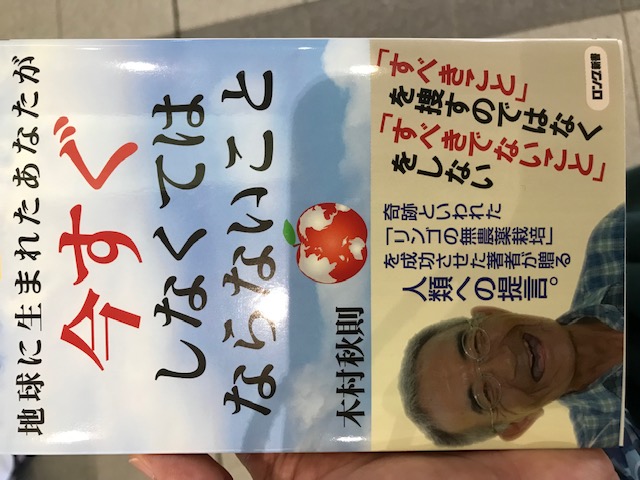 地球に生まれたあなたが
今すぐ
しなくては
ならないこと
木村秋則
ロング新書
「すべきこと」
を捜すのではなく
「すべきでないこと」
をしない
奇跡といわれた
「リンゴの無農薬栽培」
を成功させた著者が贈る
人類への提言。